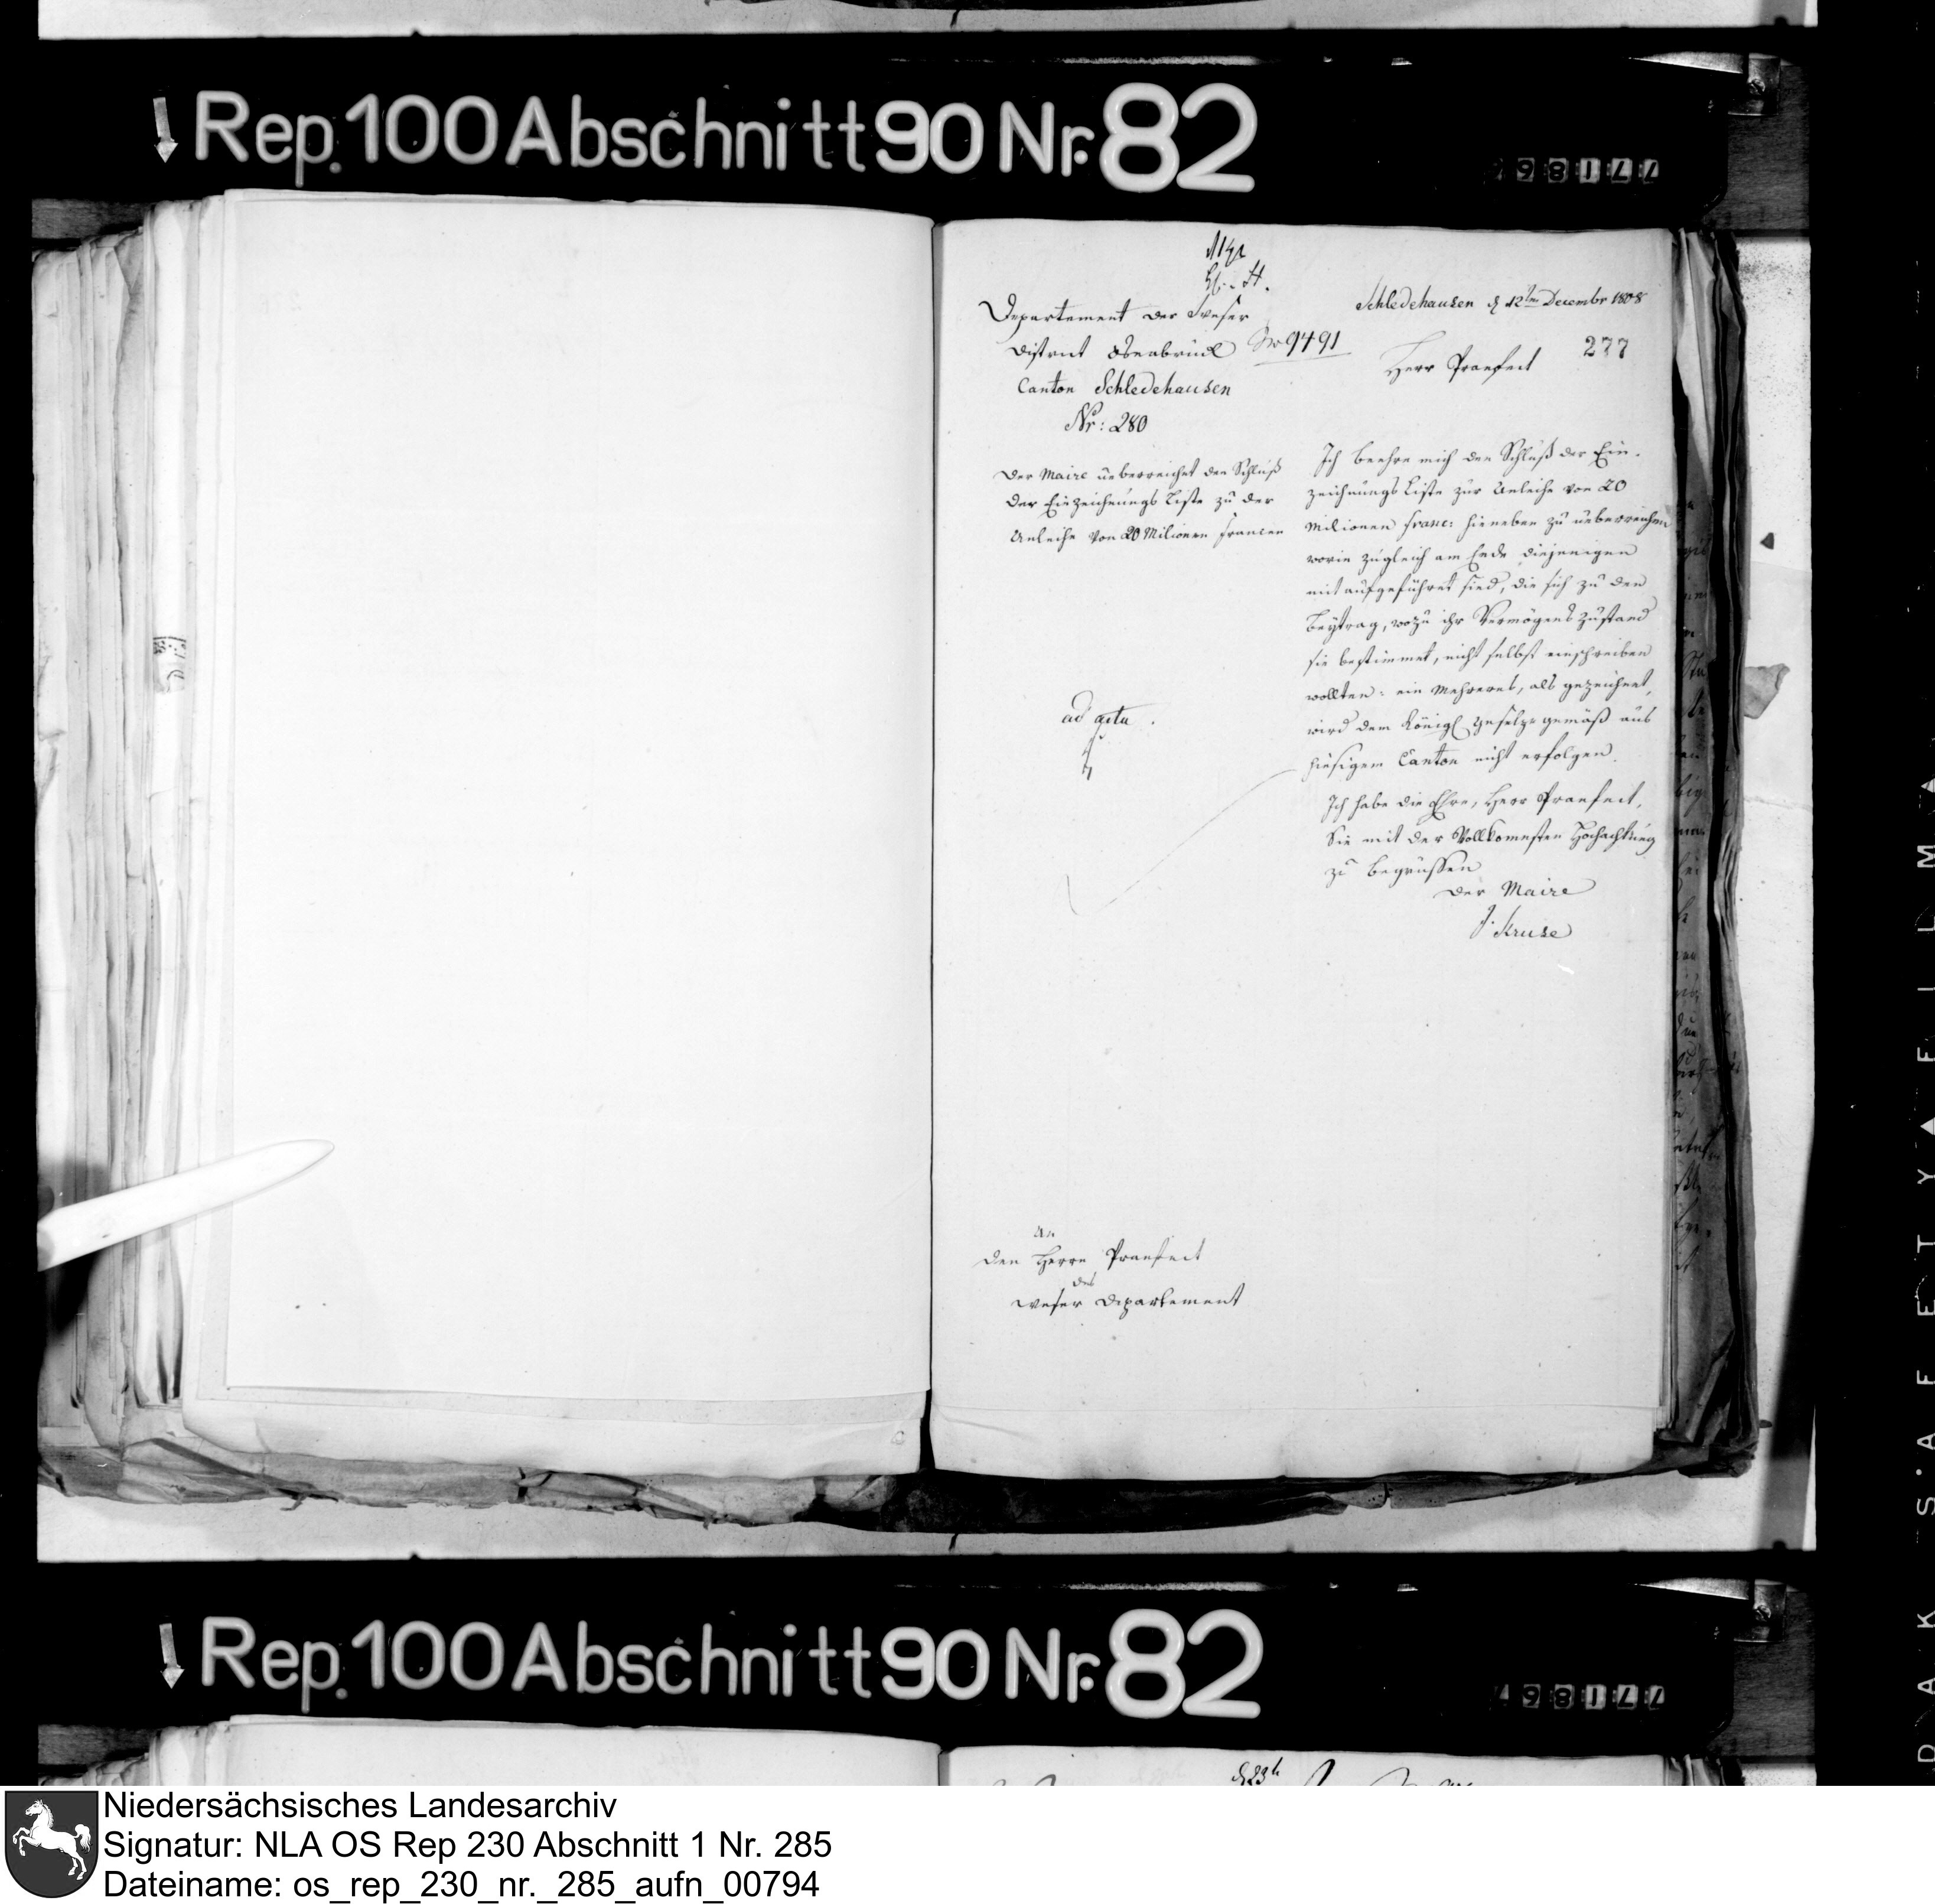 Rep. 100 Abschnitt 90 Nr. 82
771867
Departement der Weser
District Osnabrück No 9491
Canton Schledehausen
Nr: 280
Schledehausen d 12ten Decembr 1808
277
Herr Praefect
Der Maire ueberreichet den Schluß
der Einzeichnungs Liste zu der
Anleihe von 20 Milionen Francen
Ich beehre mich den Schluß der Ein-
zeichnungs Liste zur Anleihe von 20
Milionen Franc: hieneben zu ueberreichen
worin zugleich am Ende diejenigen
mit aufgeführet sind, die sich zu den
Beytrag, wozu ihr Vermögens Zustand
sie bestimmet, nicht selbst einschreiben
wollten: ein Mehreres, als gezeichnet,
wird dem Königl Gesetze gemäß aus
hiesigem Canton nicht erfolgen.
Ich habe die Ehre, Herr Praefect,
Sie mit der Vollkomensten Hochachtung
zu begrüssen
Der Maire
J. Kruse
ad acta.
An
den Herrn Praefect
des
Weser Departement
Rep. 100 Abschnitt 90 Nr. 82
771867
SAFETY FILM
Niedersächsisches Landesarchiv
Signatur: NLA OS Rep 230 Abschnitt 1 Nr. 285
Dateiname: os_rep_230_nr._285_aufn_00794